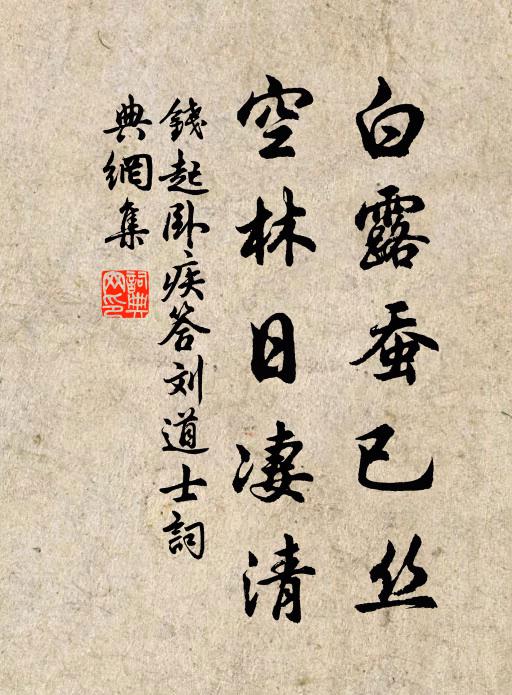 白露蚕已丝
空林日凄清
錢起卧疾答刘道士詞
典網集
詞典网印